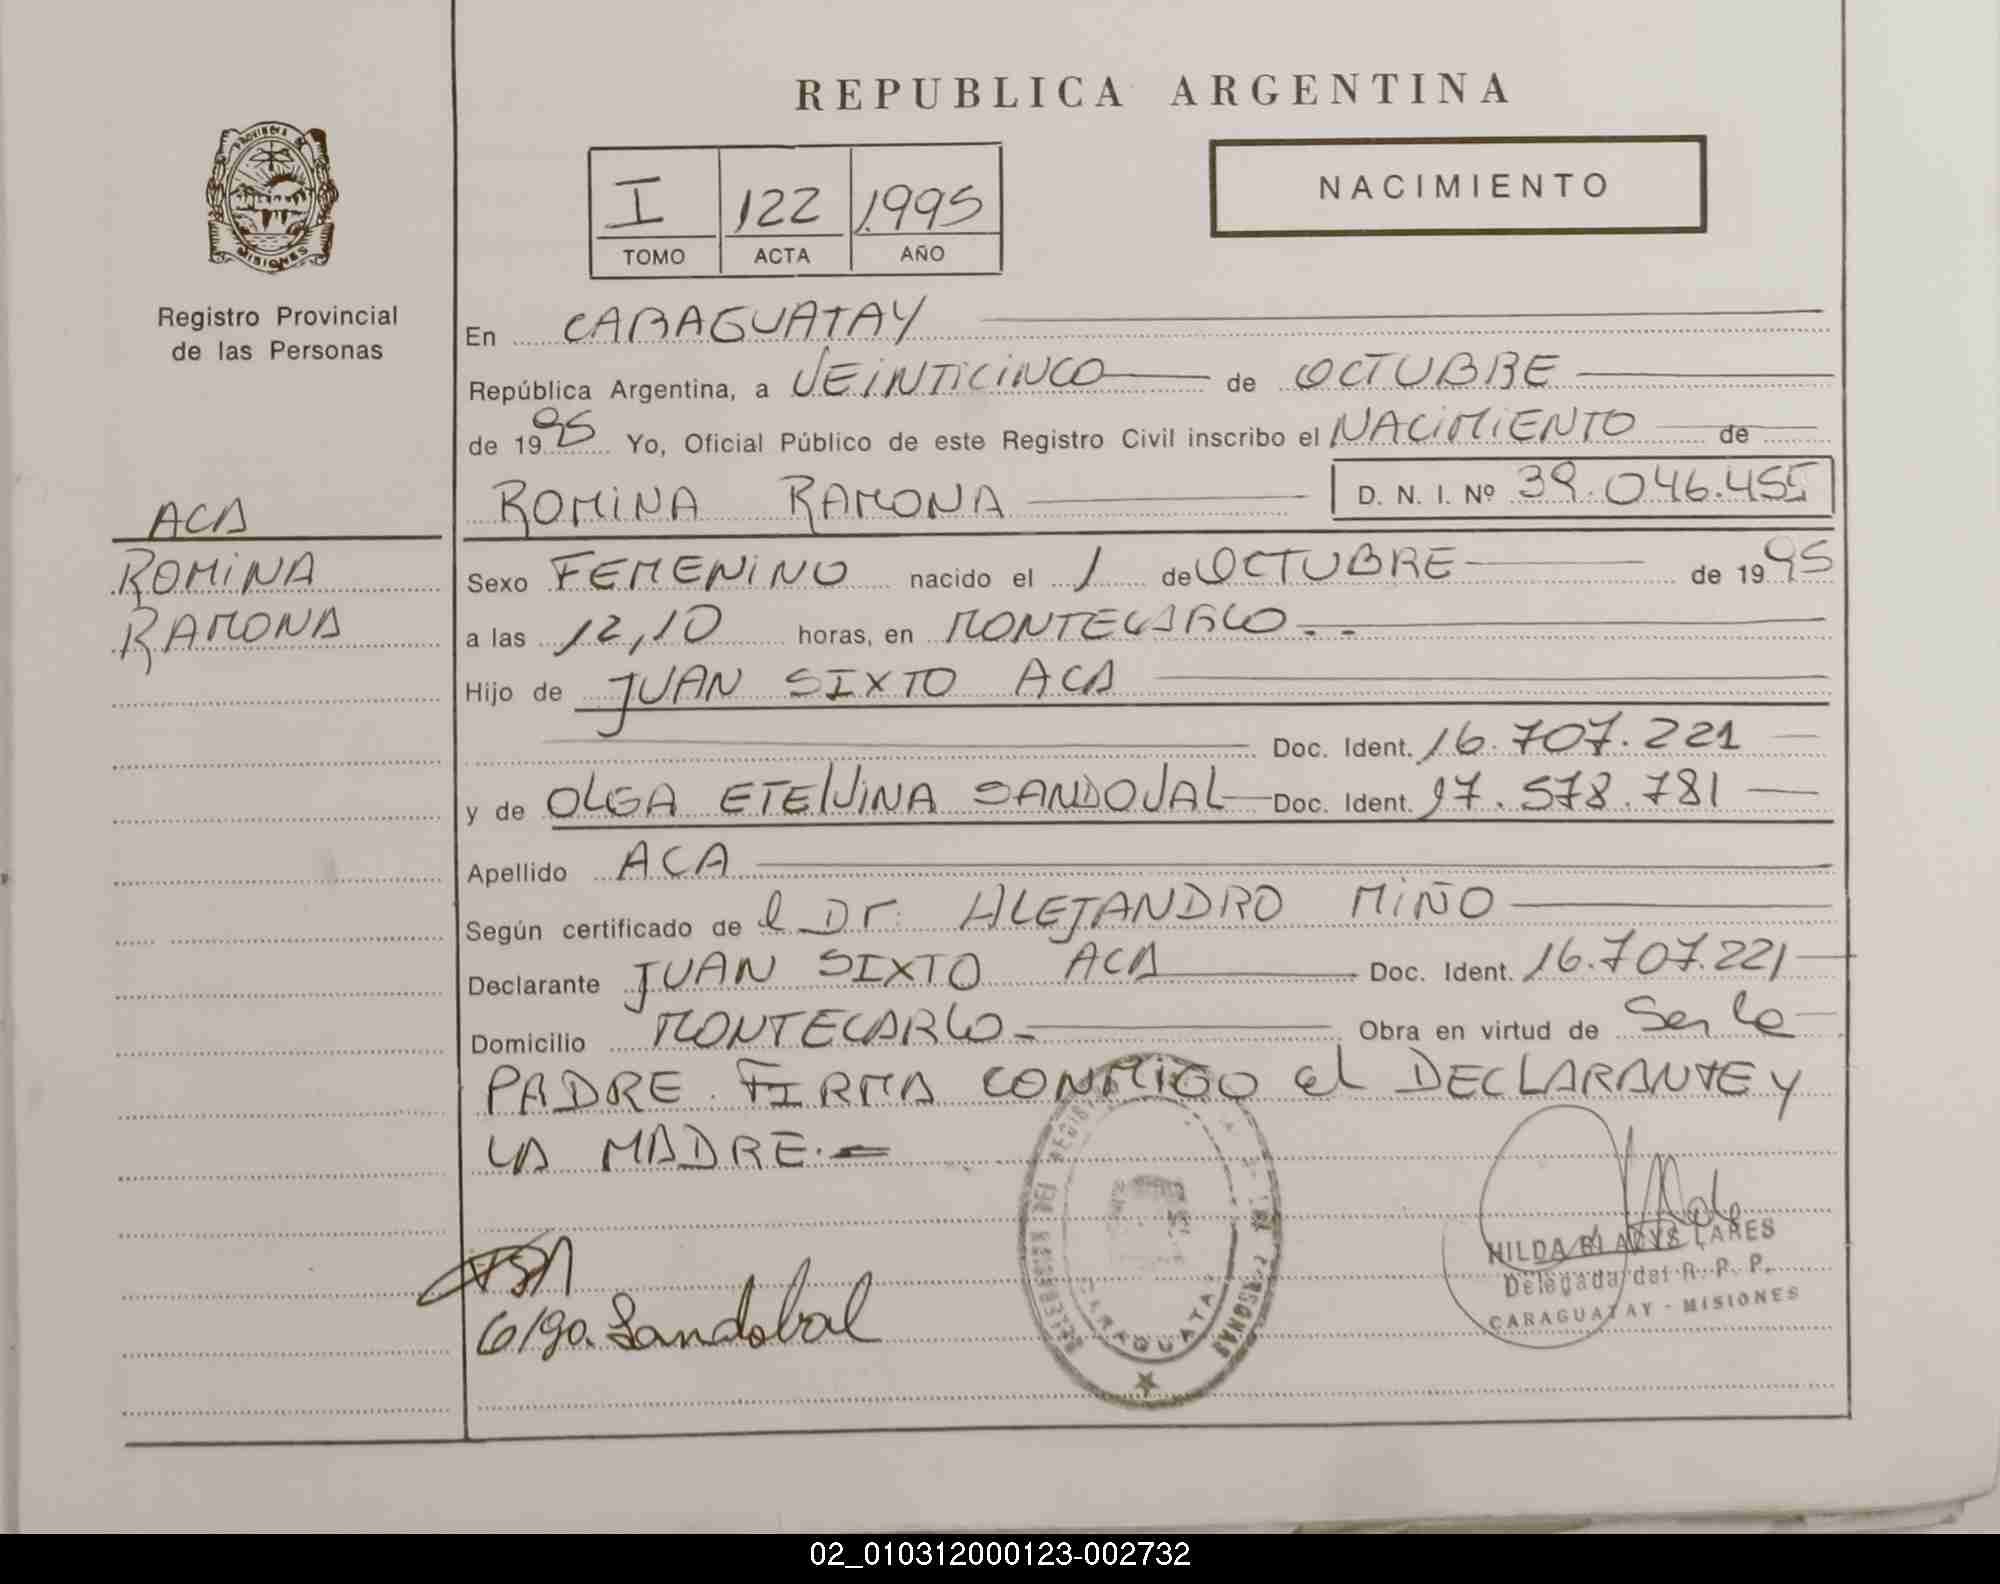 REPUBLICA ARGENTINA
PROVINCIA DE
MISIONES
Registro Provincial
de las Personas
I 122 1.995
TOMO ACTA AÑO
NACIMIENTO
En CARAGUATAY
República Argentina, a VEINTICINCO de OCTUBRE
de 1995 Yo, Oficial Público de este Registro Civil inscribo el NACIMIENTO de
ROMINA RAMONA D. N. I. Nº 39.046.455
ACA
ROMINA
RAMONA
Sexo FEMENINO nacido el 1 de OCTUBRE de 1995
a las 12,10 horas, en MONTECARLO..
Hijo de JUAN SIXTO ACA
Doc. Ident. 16.707.221
y de OLGA ETELVINA SANDOVAL Doc. Ident. 17.578.781
Apellido ACA
Según certificado de l Dr. ALEJANDRO MIÑO
Declarante JUAN SIXTO ACA Doc. Ident. 16.707.221
Domicilio MONTECARLO- Obra en virtud de Ser le
PADRE. FIRMA CONMIGO el DECLARANTE y
LA MADRE.=
Olga Sandobal
CARAGUATAY
HILDA GLADYS LARES
Delegada del R. P. P.
CARAGUATAY - MISIONES
02_010312000123-002732